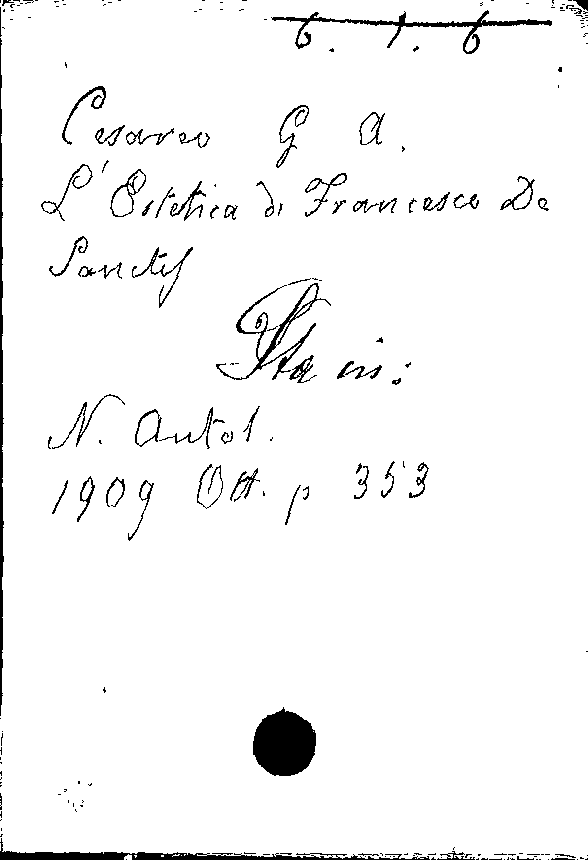 6. 1. 6
Cesareo G A.
L'Estetica di Francesco De
Sanctis
Sta in:
N. Antol.
1909 Ott. p 353